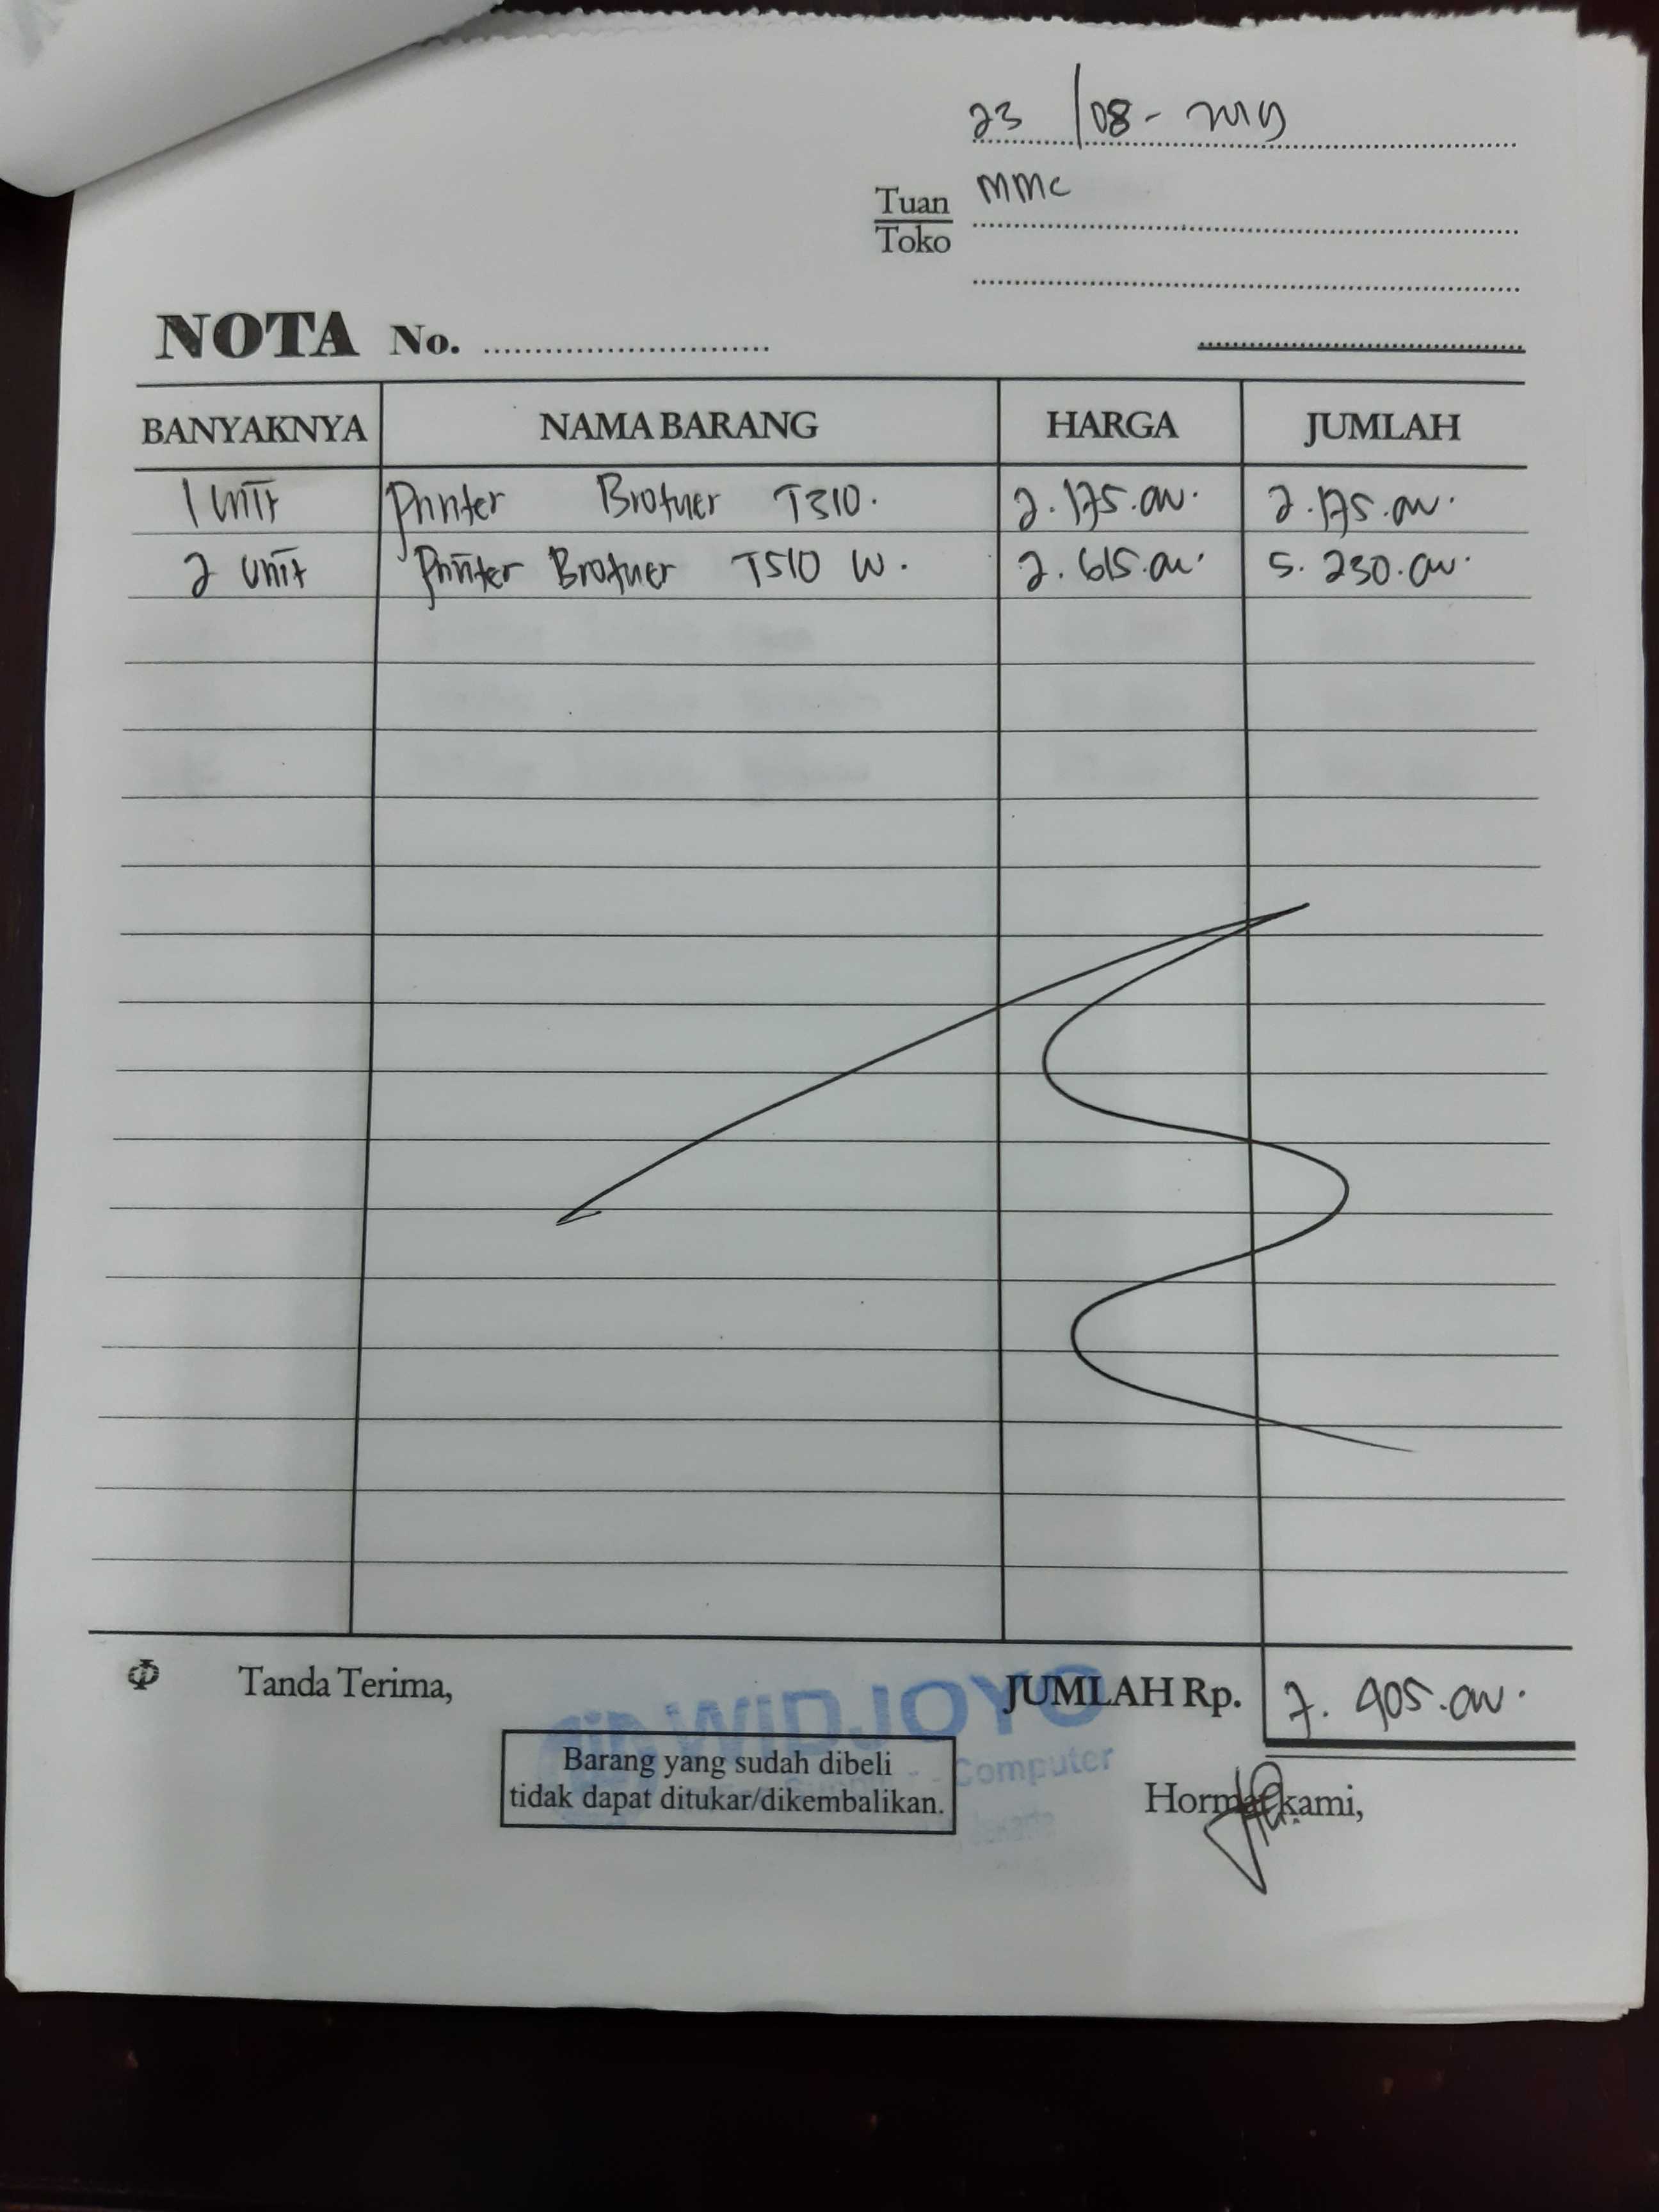 23/08-2019
Tuan MMC
Toko
NOTA No.
BANYAKNYA NAMA BARANG HARGA JUMLAH
1 Unit Printer Brother T310. 2.175.000. 2.175.000.
2 Unit Printer Brother T510 W. 2.615.000. 5.230.000.
Tanda Terima, JUMLAH Rp. 7.405.000.
WIDJOYO
Computer
Barang yang sudah dibeli
tidak dapat ditukar/dikembalikan.
Hormat kami,